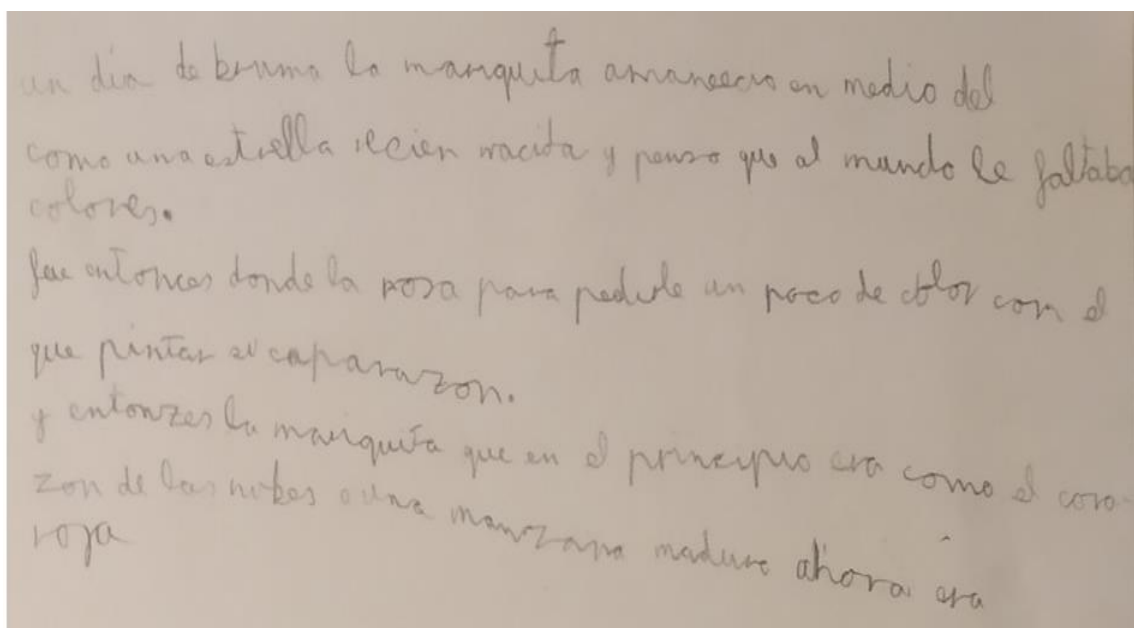 un día de bruma la mariquita amanecio en medio del
como una estrella recien nacida y penso que al mundo le faltaba
colores.
fue entonces donde la rosa para pedirle un poco de color con el
que pintar el caparazon.
y entonzes la mariquita que en el principio era como el cora-
zon de las nubes o una manzana madura ahora era
roja